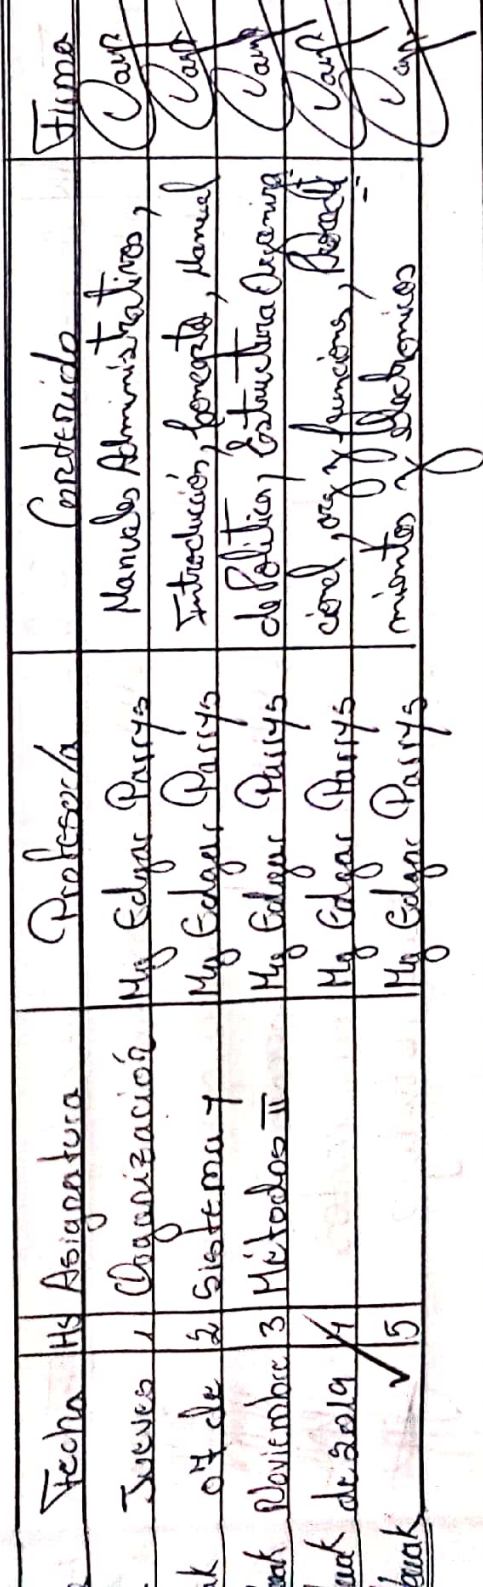 Fecha Hs Asignatura Profesor/a Contenido Firma
Jueves 1 Organización Mg Edgar Parrys Manuales Administrativos,
07 de 2 Sistema y Mg Edgar Parrys Introducción, Concepto, Manual
Noviembre 3 Métodos II Mg Edgar Parrys de Política, Estructura Organiza
de 2019 4 Mg Edgar Parrys cional, org y funciones, Procedi
5 Mg Edgar Parrys mientos y Electronicos